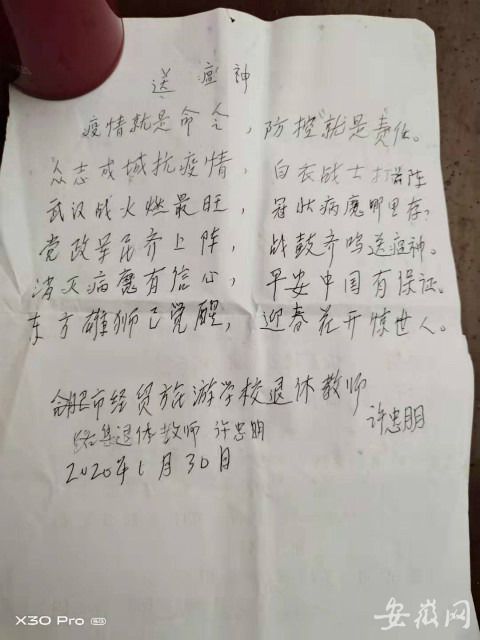 送瘟神
疫情就是命令，防控就是责任。
众志成城抗疫情，白衣战士打头阵
武汉战火燃最旺，冠状病魔哪里存？
党政军民齐上阵，战鼓齐鸣送瘟神。
消灭病魔有信心，早安中国有保证。
东方雄狮已觉醒，迎春花开惊世人。
合肥市经贸旅游学校退休教师
许忠朋
退休教师 许忠朋
2020年1月30日
X30 Pro
安徽网